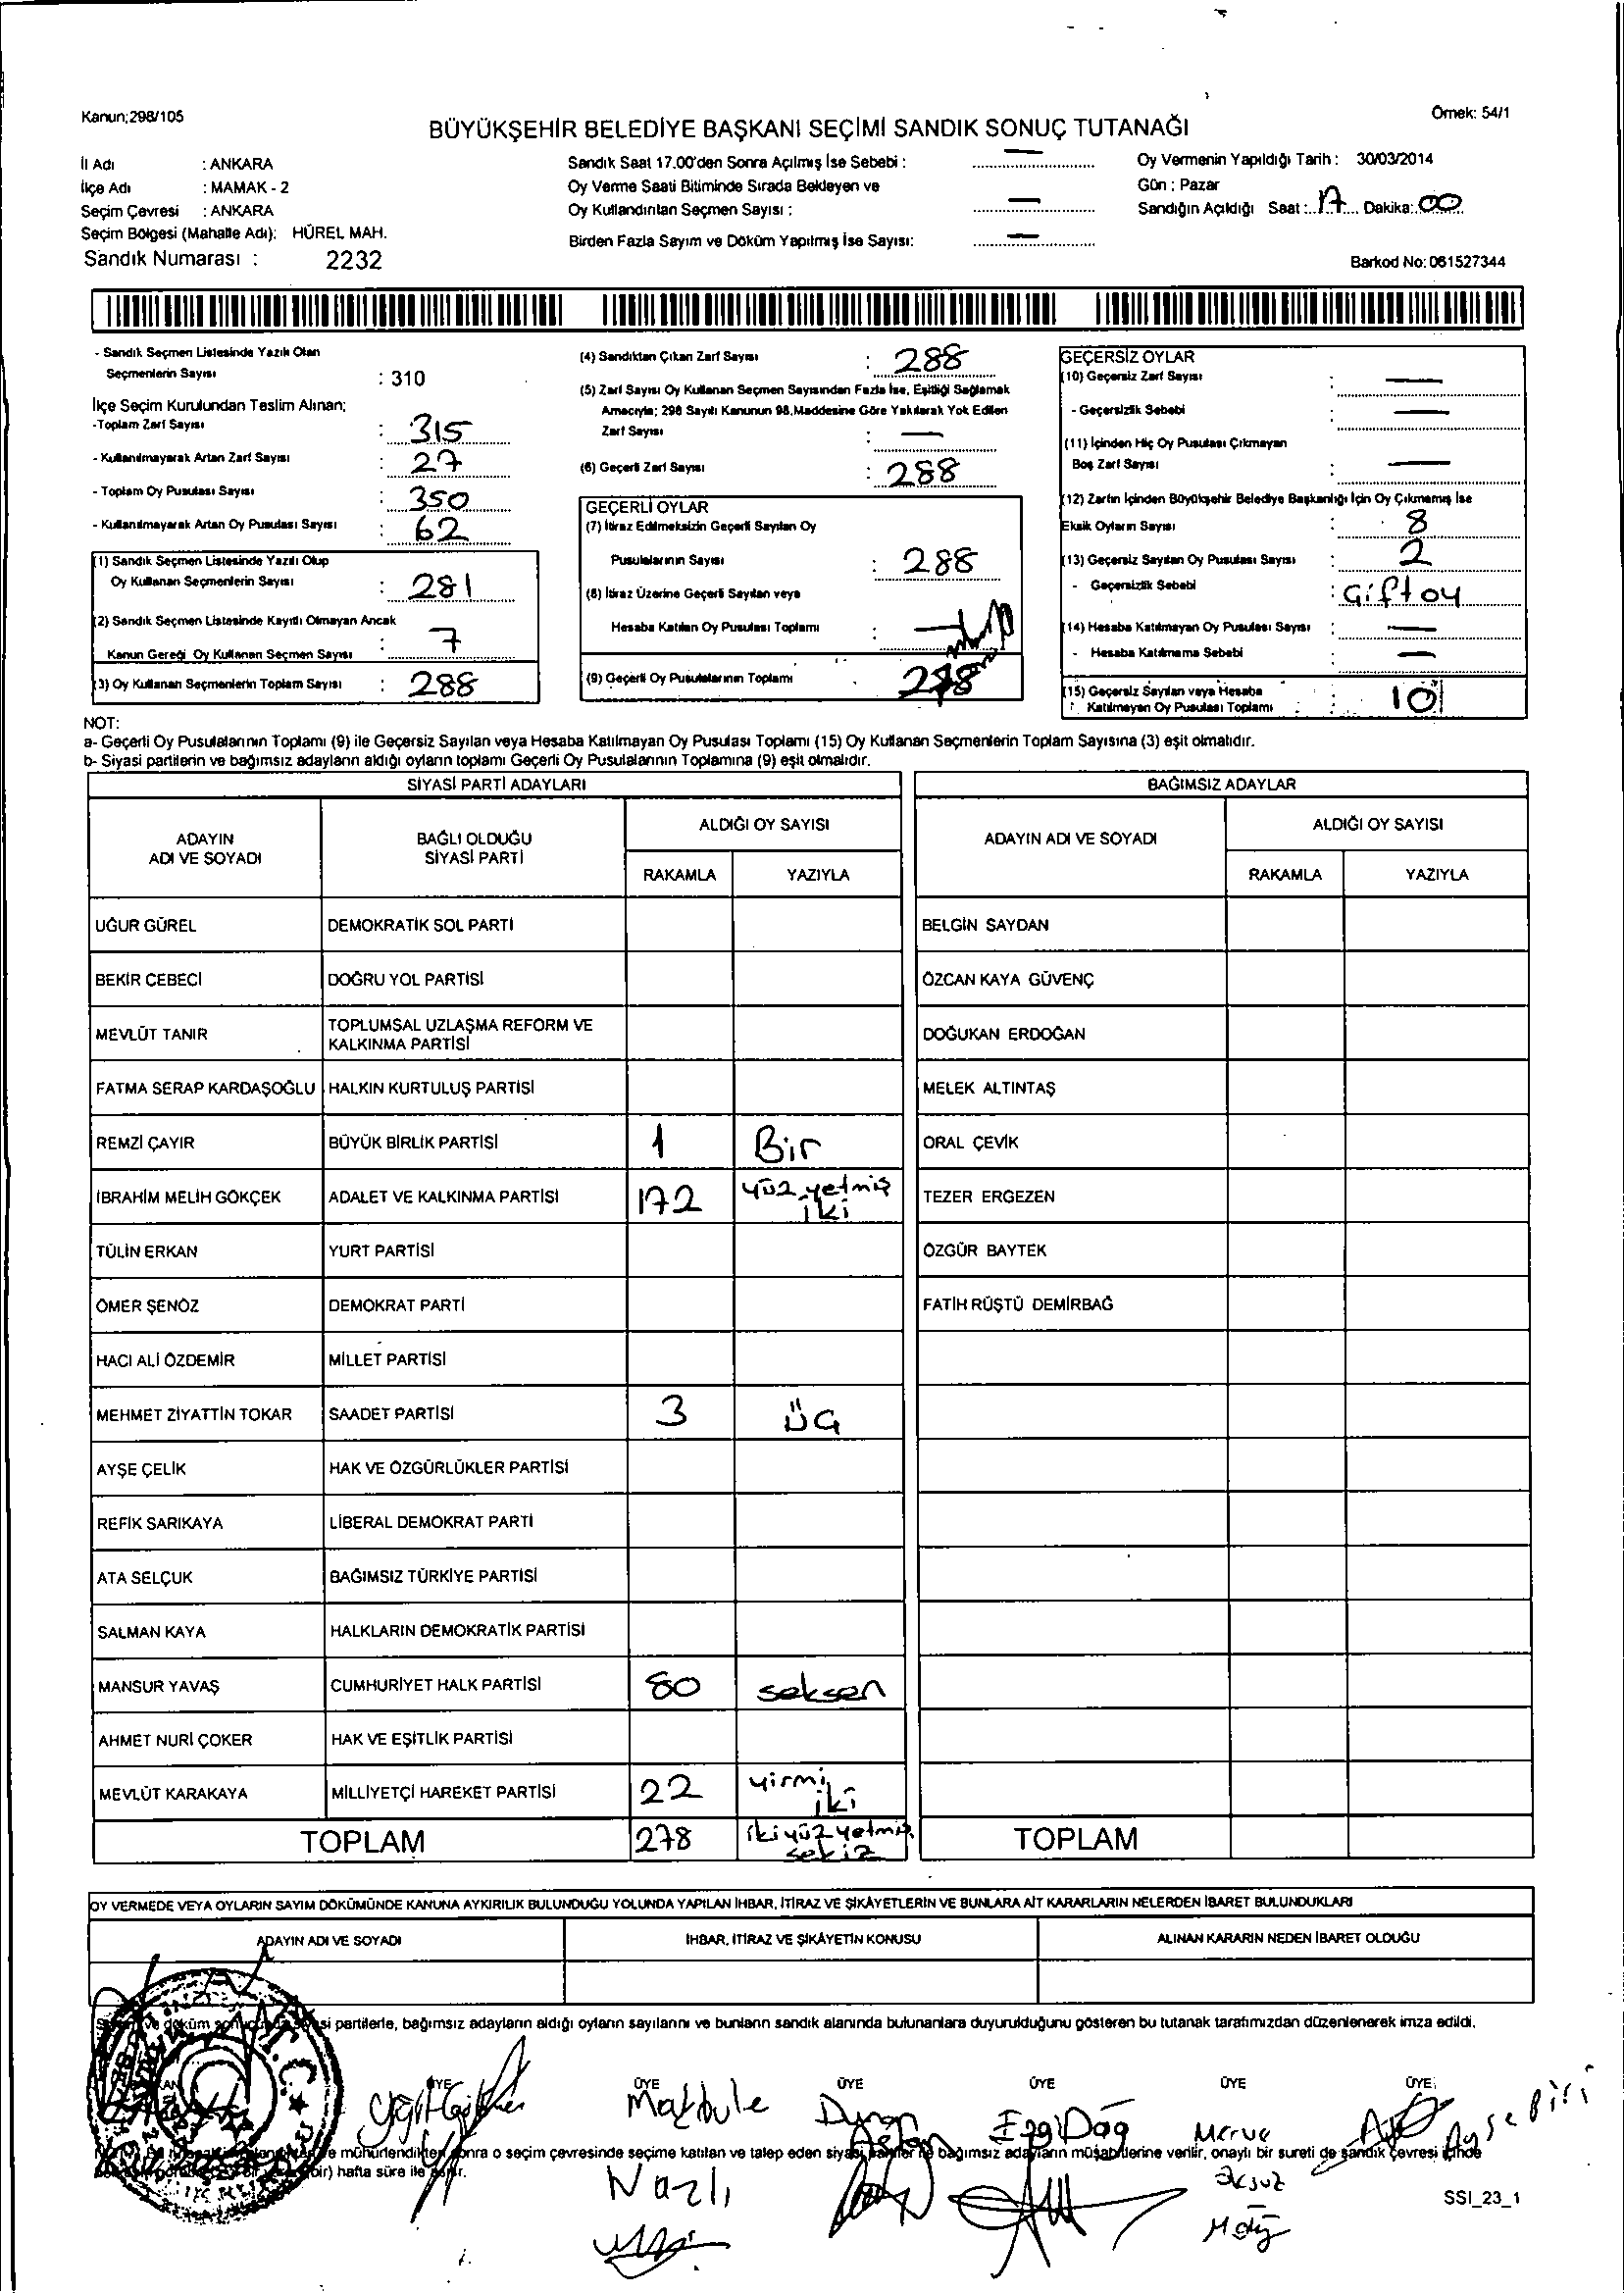 Kanun;298/105
Örnek: 54/1
BÜYÜKŞEHİR BELEDİYE BAŞKANI SEÇİMİ SANDIK SONUÇ TUTANAĞI
İl Adı : ANKARA
İlçe Adı : MAMAK - 2
Seçim Çevresi : ANKARA
Seçim Bölgesi (Mahalle Adı): HÜREL MAH.
Sandık Numarası : 2232
Sandık Saat 17.00'den Sonra Açılmış İse Sebebi : —
Oy Verme Saati Bitiminde Sırada Bekleyen ve
Oy Kullandırılan Seçmen Sayısı : —
Birden Fazla Sayım ve Döküm Yapılmış İse Sayısı: —
Oy Vermenin Yapıldığı Tarih : 30/03/2014
Gün : Pazar
Sandığın Açıldığı Saat : 17 Dakika: 00
Barkod No: 061527344
- Sandık Seçmen Listesinde Yazılı Olan
Seçmenlerin Sayısı : 310
İlçe Seçim Kurulundan Teslim Alınan;
-Toplam Zarf Sayısı : 315
- Kullanılmayarak Artan Zarf Sayısı : 27
- Toplam Oy Pusulası Sayısı : 350
- Kullanılmayarak Artan Oy Pusulası Sayısı : 62
(1) Sandık Seçmen Listesinde Yazılı Olup
Oy Kullanan Seçmenlerin Sayısı : 281
(2) Sandık Seçmen Listesinde Kayıtlı Olmayan Ancak
Kanun Gereği Oy Kullanan Seçmen Sayısı : 7
(3) Oy Kullanan Seçmenlerin Toplam Sayısı : 288
(4) Sandıktan Çıkan Zarf Sayısı : 288
(5) Zarf Sayısı Oy Kullanan Seçmen Sayısından Fazla İse, Eşitliği Sağlamak
Amacıyla; 298 Sayılı Kanunun 98.Maddesine Göre Yakılarak Yok Edilen
Zarf Sayısı : —
(6) Geçerli Zarf Sayısı : 288
GEÇERLİ OYLAR
(7) İtiraz Edilmeksizin Geçerli Sayılan Oy
Pusulalarının Sayısı : 288
(8) İtiraz Üzerine Geçerli Sayılan veya
Hesaba Katılan Oy Pusulası Toplamı : —
(9) Geçerli Oy Pusulalarının Toplamı 278
GEÇERSİZ OYLAR
(10) Geçersiz Zarf Sayısı : —
- Geçersizlik Sebebi : —
(11) İçinden Hiç Oy Pusulası Çıkmayan
Boş Zarf Sayısı : —
(12) Zarfın İçinden Büyükşehir Belediye Başkanlığı İçin Oy Çıkmamış İse
Eksik Oyların Sayısı : 8
(13) Geçersiz Sayılan Oy Pusulası Sayısı : 2
- Geçersizlik Sebebi : Çift oy
(14) Hesaba Katılmayan Oy Pusulası Sayısı : —
- Hesaba Katılmama Sebebi : —
(15) Geçersiz Sayılan veya Hesaba
Katılmayan Oy Pusulası Toplamı : 10
NOT:
a- Geçerli Oy Pusulalarının Toplamı (9) ile Geçersiz Sayılan veya Hesaba Katılmayan Oy Pusulası Toplamı (15) Oy Kullanan Seçmenlerin Toplam Sayısına (3) eşit olmalıdır.
b- Siyasi partilerin ve bağımsız adayların aldığı oyların toplamı Geçerli Oy Pusulalarının Toplamına (9) eşit olmalıdır.
SİYASİ PARTİ ADAYLARI
ADAYIN ADI VE SOYADI BAĞLI OLDUĞU SİYASİ PARTİ ALDIĞI OY SAYISI
RAKAMLA YAZIYLA
UĞUR GÜREL DEMOKRATİK SOL PARTİ
BEKİR CEBECİ DOĞRU YOL PARTİSİ
MEVLÜT TANIR TOPLUMSAL UZLAŞMA REFORM VE
KALKINMA PARTİSİ
FATMA SERAP KARDAŞOĞLU HALKIN KURTULUŞ PARTİSİ
REMZİ ÇAYIR BÜYÜK BİRLİK PARTİSİ 1 Bir
İBRAHİM MELİH GÖKÇEK ADALET VE KALKINMA PARTİSİ 172 yüz yetmiş iki
TÜLİN ERKAN YURT PARTİSİ
ÖMER ŞENÖZ DEMOKRAT PARTİ
HACI ALİ ÖZDEMİR MİLLET PARTİSİ
MEHMET ZİYATTİN TOKAR SAADET PARTİSİ 3 üç
AYŞE ÇELİK HAK VE ÖZGÜRLÜKLER PARTİSİ
REFİK SARIKAYA LİBERAL DEMOKRAT PARTİ
ATA SELÇUK BAĞIMSIZ TÜRKİYE PARTİSİ
SALMAN KAYA HALKLARIN DEMOKRATİK PARTİSİ
MANSUR YAVAŞ CUMHURİYET HALK PARTİSİ 80 seksen
AHMET NURİ ÇOKER HAK VE EŞİTLİK PARTİSİ
MEVLÜT KARAKAYA MİLLİYETÇİ HAREKET PARTİSİ 22 yirmi iki
TOPLAM 278 iki yüz yetmiş sekiz
BAĞIMSIZ ADAYLAR
ADAYIN ADI VE SOYADI ALDIĞI OY SAYISI
RAKAMLA YAZIYLA
BELGİN SAYDAN
ÖZCAN KAYA GÜVENÇ
DOĞUKAN ERDOĞAN
MELEK ALTINTAŞ
ORAL ÇEVİK
TEZER ERGEZEN
ÖZGÜR BAYTEK
FATİH RÜŞTÜ DEMİRBAĞ
TOPLAM
OY VERMEDE VEYA OYLARIN SAYIM DÖKÜMÜNDE KANUNA AYKIRILIK BULUNDUĞU YOLUNDA YAPILAN İHBAR, İTİRAZ VE ŞİKÂYETLERİN VE BUNLARA AİT KARARLARIN NELERDEN İBARET BULUNDUKLARI
ADAYIN ADI VE SOYADI İHBAR, İTİRAZ VE ŞİKÂYETİN KONUSU ALINAN KARARIN NEDEN İBARET OLDUĞU
partilerle, bağımsız adayların aldığı oyların sayılarını ve bunların sandık alanında bulunanlara duyurulduğunu gösteren bu tutanak tarafımızdan düzenlenerek imza edildi.
ÜYE ÜYE ÜYE ÜYE ÜYE ÜYE
Makbule Ezgi Dağ Merve Ayşe Piri
mühürlendikten sonra o seçim çevresinde seçime katılan ve talep eden siyasi partiler ve bağımsız adayların müşahitlerine verilir, onaylı bir sureti de sandık çevresi içinde
bir) hafta süre ile asılır.
Nazlı
SSI_23_1